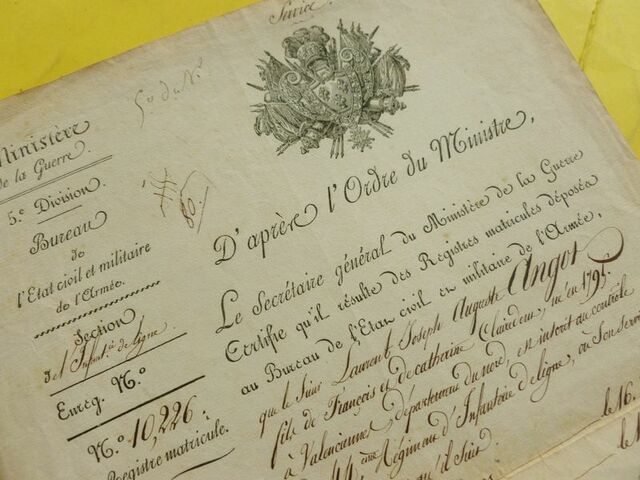 Service
5e d. N°
Ministère
de la Guerre.
5e. Division.
Bureau
de
l'Etat civil et militaire
de l'Armée.
Section
d'Infanterie de ligne
Enrég. N°
N°. 10,226.
Registre matricule.
D'après l'Ordre du Ministre,
Le Secrétaire général du Ministère de la Guerre
Certifie qu'il résulte des Registres matricules déposés
au Bureau de l'Etat civil et militaire de l'Armée,
que le Sieur Laurent Joseph Auguste Angot
fils de François et de Catherine Claudeur, né en 1795.
à Valenciennes, département du nord, est inscrit au contrôle
44ème Régiment d'Infanterie de ligne, où Son Service
qu'il Suit
le 16.
le 1